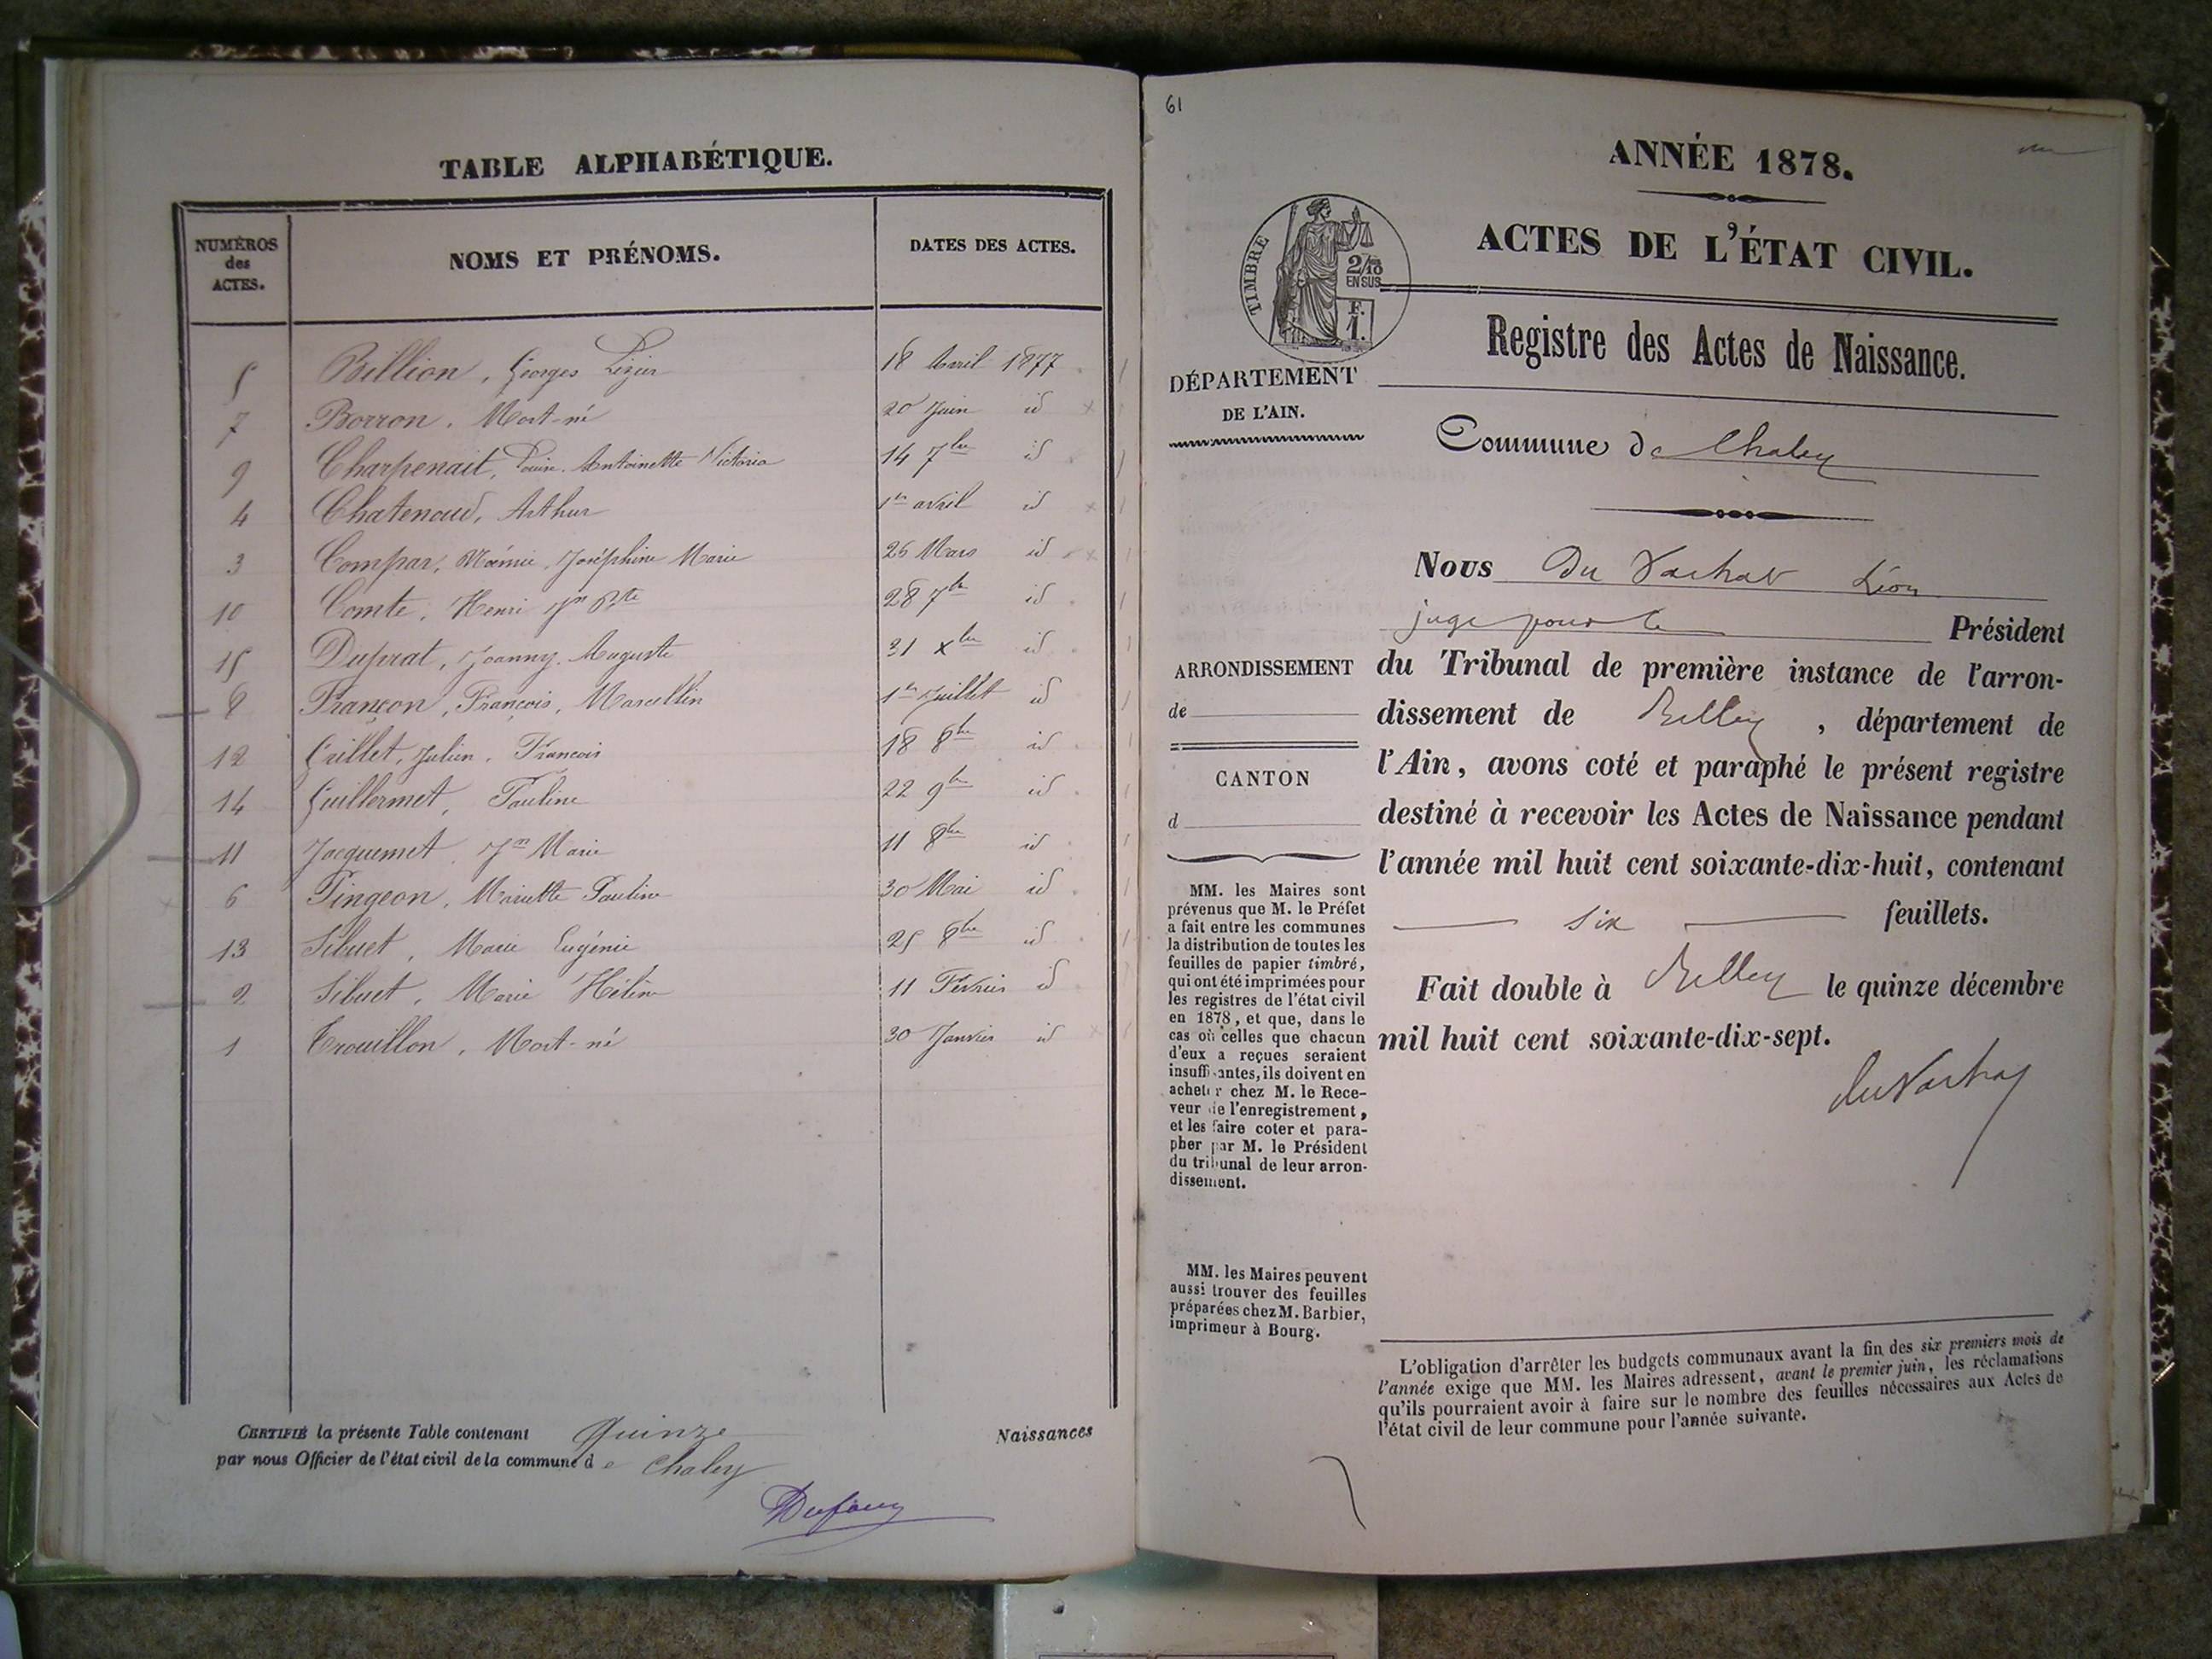 TABLE ALPHABÉTIQUE.
NUMÉROS
des
ACTES.
NOMS ET PRÉNOMS.
DATES DES ACTES.
5 Billion, Georges 18 Avril 1877
7 Borron, Mort-né 20 Juin id
9 Charpenait, Antoinette Victoria 14 7bre id
4 Chatenoud, Arthur 1er avril id
3 Compar, Noémie, Joséphine Marie 26 Mars id
10 Comte, Henri Jn Bte 28 7bre id
15 Duprat, Joanny, Auguste 31 xbre id
8 Françon, François, Marcellin 1er Juillet id
12 Grillet, Julien, François 18 8bre id
14 Guillermet, Pauline 22 9bre id
11 Jacquemet, Jn Marie 11 8bre id
6 Pingeon, Mariette Pauline 30 Mai id
13 Sibuet, Marie Eugénie 25 8bre id
2 Sibuet, Marie Hélène 11 Février id
1 Trouillon, Mort-né 30 Janvier id
CERTIFIÉ la présente Table contenant Quinze Naissances
par nous Officier de l'état civil de la commune de Chaley
61
ANNÉE 1878.
ACTES DE L'ÉTAT CIVIL.
TIMBRE
2/10
EN SUS
F.
1.
Registre des Actes de Naissance.
DÉPARTEMENT
DE L'AIN.
Commune de Chaley
Nous Du Vachat Léon
juge pour le Président
du Tribunal de première instance de l'arron-
dissement de Belley, département de
l'Ain, avons coté et paraphé le présent registre
destiné à recevoir les Actes de Naissance pendant
l'année mil huit cent soixante-dix-huit, contenant
six feuillets.
Fait double à Belley le quinze décembre
mil huit cent soixante-dix-sept.
du Vachat
ARRONDISSEMENT
de
CANTON
d
MM. les Maires sont
prévenus que M. le Préfet
a fait entre les communes
la distribution de toutes les
feuilles de papier timbré,
qui ont été imprimées pour
les registres de l'état civil
en 1878, et que, dans le
cas où celles que chacun
d'eux a reçues seraient
insuffisantes, ils doivent en
acheter chez M. le Rece-
veur de l'enregistrement,
et les faire coter et para-
pher par M. le Président
du tribunal de leur arron-
dissement.
MM. les Maires peuvent
aussi trouver des feuilles
préparées chez M. Barbier,
imprimeur à Bourg.
L'obligation d'arrêter les budgets communaux avant la fin des six premiers mois de
l'année exige que MM. les Maires adressent, avant le premier juin, les réclamations
qu'ils pourraient avoir à faire sur le nombre des feuilles nécessaires aux Actes de
l'état civil de leur commune pour l'année suivante.